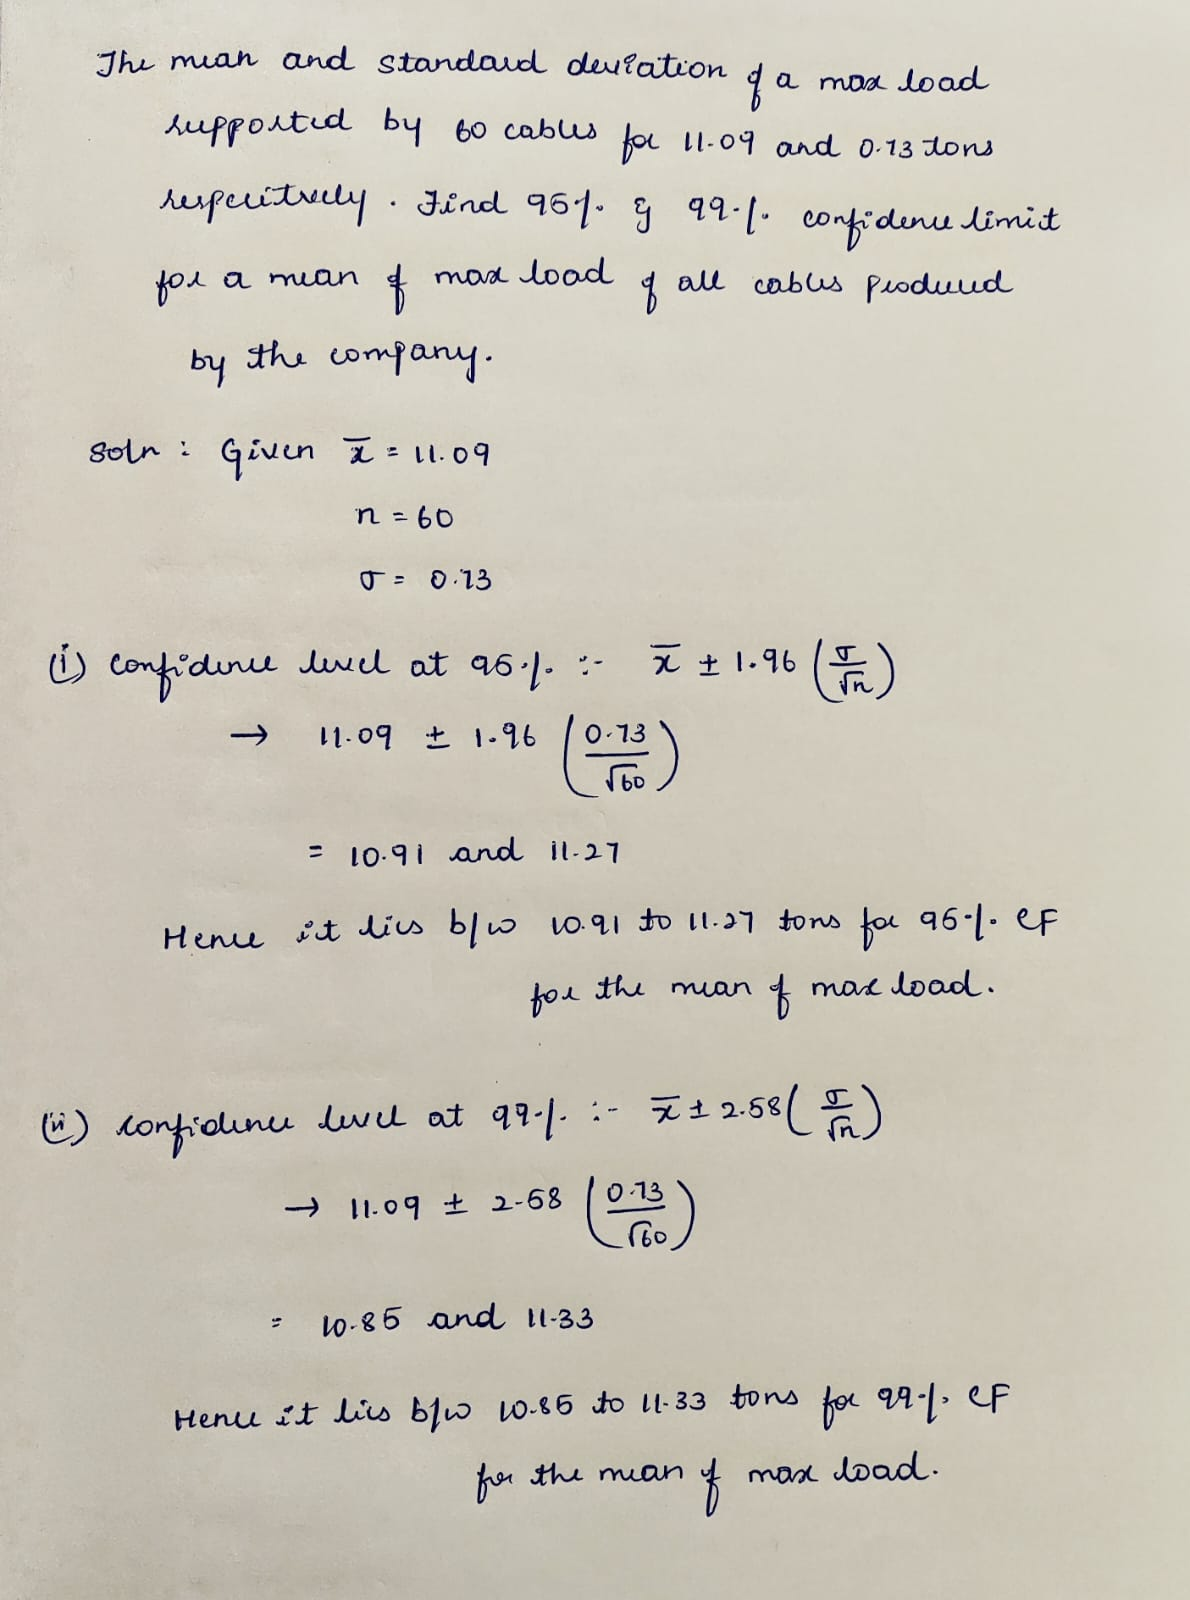 The mean and standard deviation of a max load
supported by 60 cables for 11.09 and 0.73 tons
respectively. Find 95% & 99% confidence limit
for a mean of max load of all cables produced
by the company.
Soln : Given x̄ = 11.09
n = 60
σ = 0.73
(i) confidence level at 95% :- x̄ ± 1.96 (σ/√n)
→ 11.09 ± 1.96 (0.73/√60)
= 10.91 and 11.27
Hence it lies b/w 10.91 to 11.27 tons for 95% CF
for the mean of max load.
(ii) confidence level at 99% :- x̄ ± 2.58 (σ/√n)
→ 11.09 ± 2.58 (0.73/√60)
= 10.85 and 11.33
Hence it lies b/w 10.85 to 11.33 tons for 99% CF
for the mean of max load.